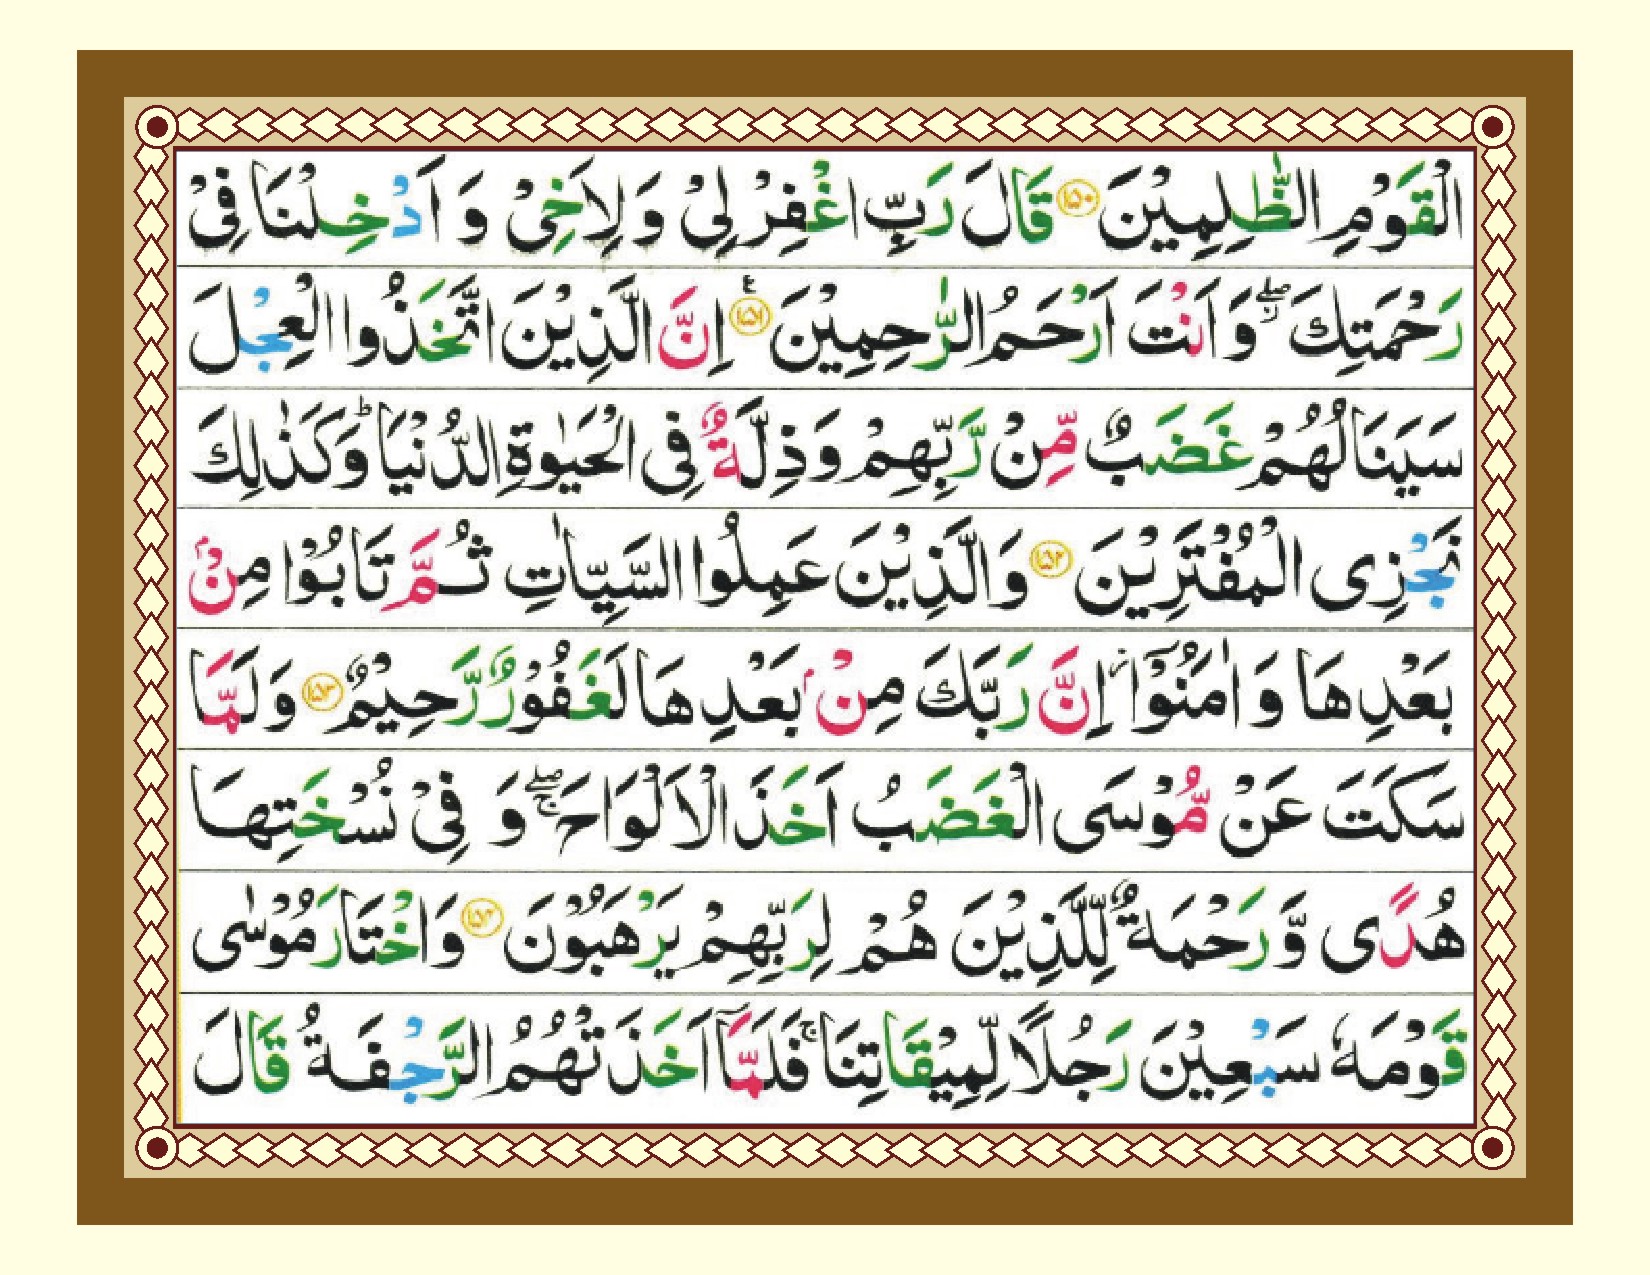 الْقَوْمِ الظّٰلِمِيْنَ ﴿۱۵۰﴾ قَالَ رَبِّ اغْفِرْ لِىْ وَلِاَخِىْ وَ اَدْخِلْنَا فِىْ
رَحْمَتِكَ ۖ وَ اَنْتَ اَرْحَمُ الرّٰحِمِيْنَ ﴿۱۵۱﴾ ع اِنَّ الَّذِيْنَ اتَّخَذُوا الْعِجْلَ
سَيَنَالُهُمْ غَضَبٌ مِّنْ رَّبِّهِمْ وَذِلَّةٌ فِى الْحَيٰوةِ الدُّنْيَا ؕ وَكَذٰلِكَ
نَجْزِى الْمُفْتَرِيْنَ ﴿۱۵۲﴾ وَالَّذِيْنَ عَمِلُوا السَّيِّاٰتِ ثُمَّ تَابُوْا مِنْۢ
بَعْدِهَا وَ اٰمَنُوْۤا ؗ اِنَّ رَبَّكَ مِنْۢ بَعْدِهَا لَغَفُوْرٌ رَّحِيْمٌ ﴿۱۵۳﴾ وَلَمَّا
سَكَتَ عَنْ مُّوْسَى الْغَضَبُ اَخَذَ الْاَلْوَاحَ ۖۚ وَ فِىْ نُسْخَتِهَا
هُدًى وَّ رَحْمَةٌ لِّلَّذِيْنَ هُمْ لِرَبِّهِمْ يَرْهَبُوْنَ ﴿۱۵۴﴾ وَاخْتَارَ مُوْسٰى
قَوْمَهٗ سَبْعِيْنَ رَجُلًا لِّمِيْقَاتِنَا ۚ فَلَمَّاۤ اَخَذَتْهُمُ الرَّجْفَةُ قَالَ